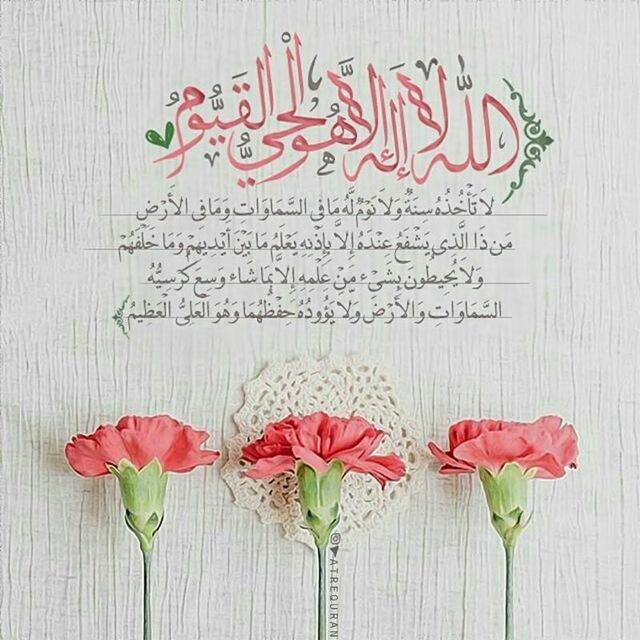 اللهُ لَا إِلَهَ إِلَّا هُوَ الْحَيُّ الْقَيُّومُ
لَا تَأْخُذُهُ سِنَةٌ وَلَا نَوْمٌ لَهُ مَا فِي السَّمَاوَاتِ وَمَا فِي الْأَرْضِ
مَن ذَا الَّذِي يَشْفَعُ عِندَهُ إِلَّا بِإِذْنِهِ يَعْلَمُ مَا بَيْنَ أَيْدِيهِمْ وَمَا خَلْفَهُمْ
وَلَا يُحِيطُونَ بِشَيْءٍ مِّنْ عِلْمِهِ إِلَّا بِمَا شَاءَ وَسِعَ كُرْسِيُّهُ
السَّمَاوَاتِ وَالْأَرْضَ وَلَا يَؤُودُهُ حِفْظُهُمَا وَهُوَ الْعَلِيُّ الْعَظِيمُ
ATREQURAN